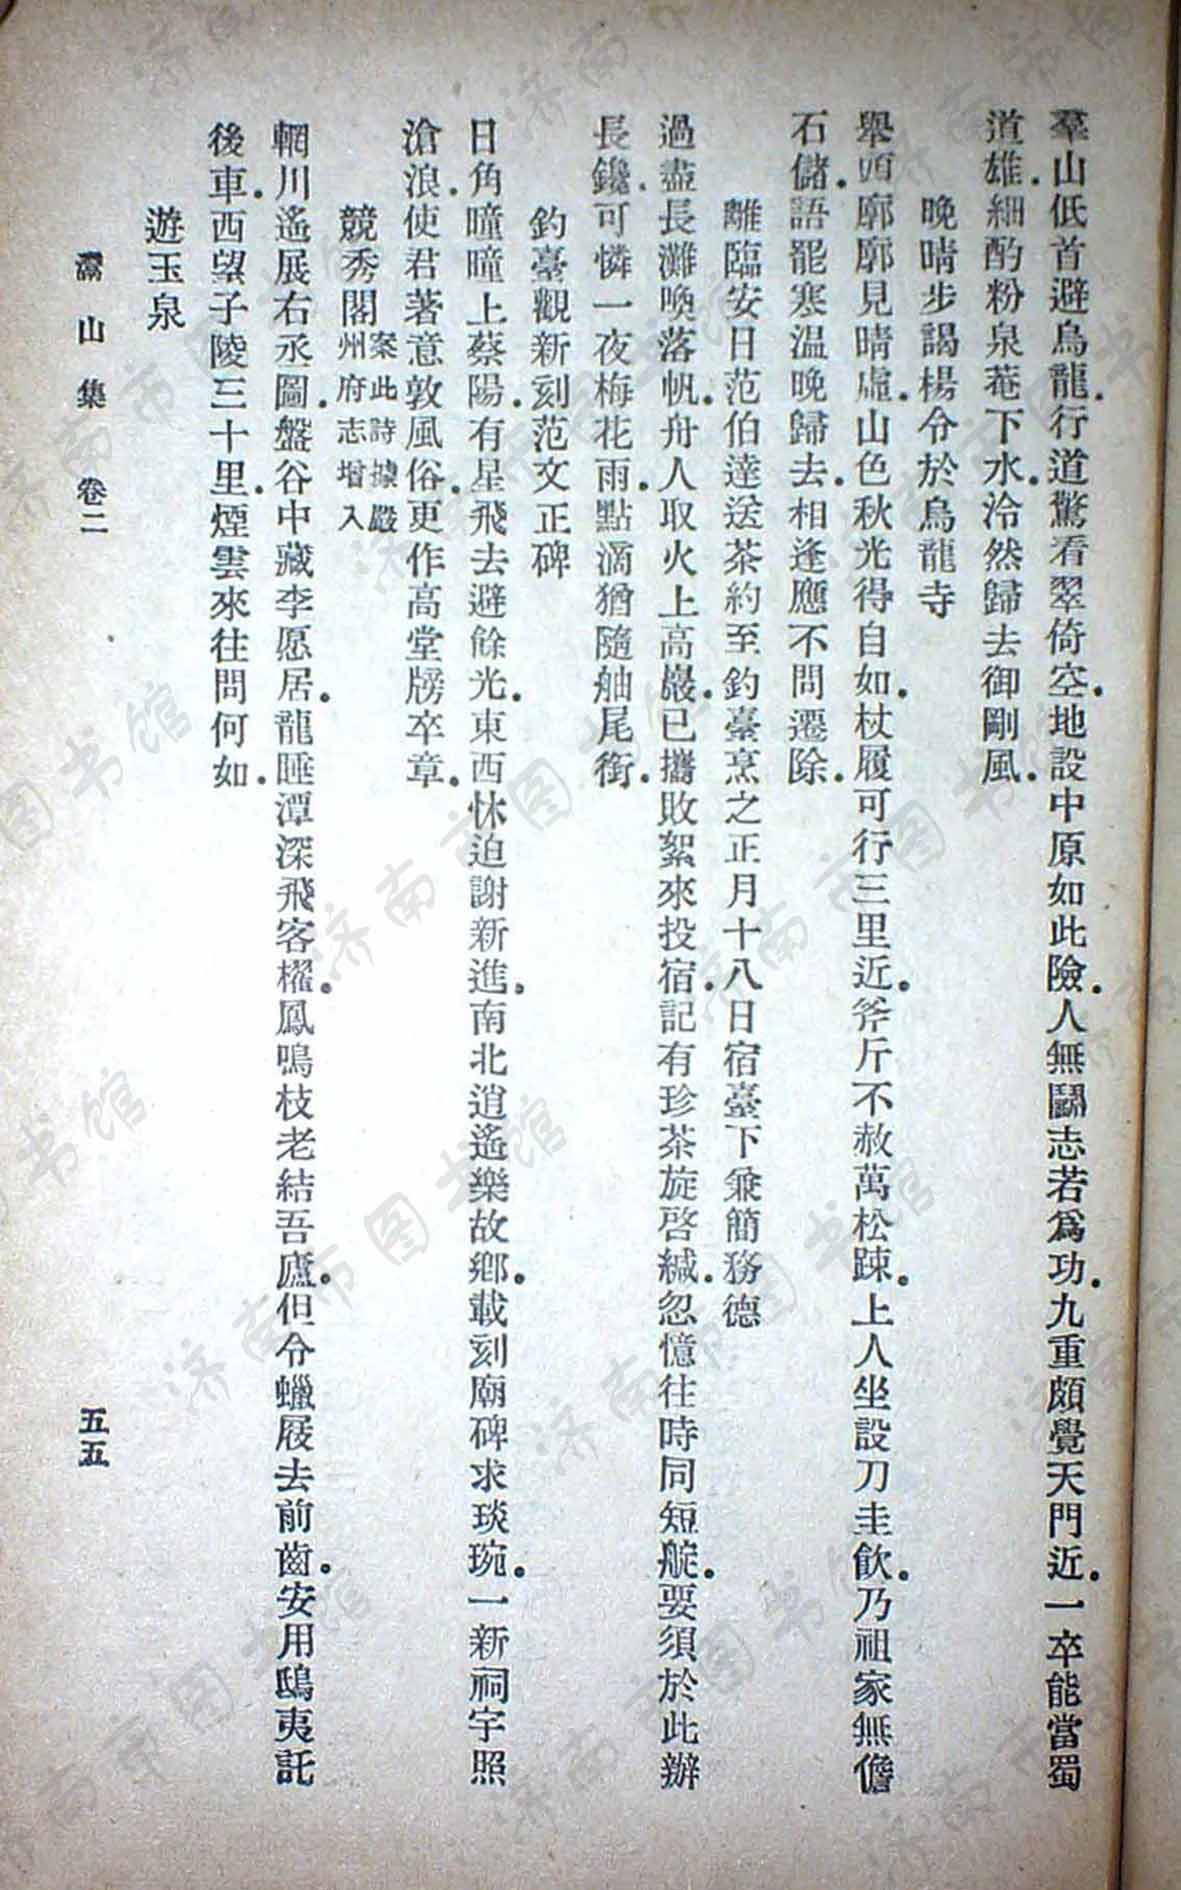 羣山低首避烏龍行道驚看翠倚空地設中原如此險人無鬭志若爲功九重頗覺天門近一卒能當蜀
道雄細酌粉泉菴下水泠然歸去御剛風
晚晴步謁楊令於烏龍寺
舉頭廓廓見晴虛山色秋光得自如杖履可行三里近斧斤不赦萬松踈上人坐設刀圭飲乃祖家無儋
石儲語罷寒溫晚歸去相逢應不問遷除
離臨安日范伯達送茶約至釣臺烹之正月十八日宿臺下兼簡務德
過盡長灘喚落帆舟人取火上高巖已攜敗絮來投宿記有珍茶旋啓緘忽憶往時同短艇要須於此辦
長鑱可憐一夜梅花雨點滴猶隨舳尾銜
釣臺觀新刻范文正碑
日角曈曈上蔡陽有星飛去避餘光東西怵迫謝新進南北逍遙樂故鄉載刻廟碑求琰琬一新祠宇照
滄浪使君著意敦風俗更作高堂牓卒章
競秀閣 案此詩據嚴州府志增入
輞川遙展右丞圖盤谷中藏李愿居龍睡潭深飛客櫂鳳鳴枝老結吾廬但令蠟屐去前齒安用鴟夷託
後車西望子陵三十里煙雲來往問何如
遊玉泉
灊山集 卷二
五五
济南市图书馆